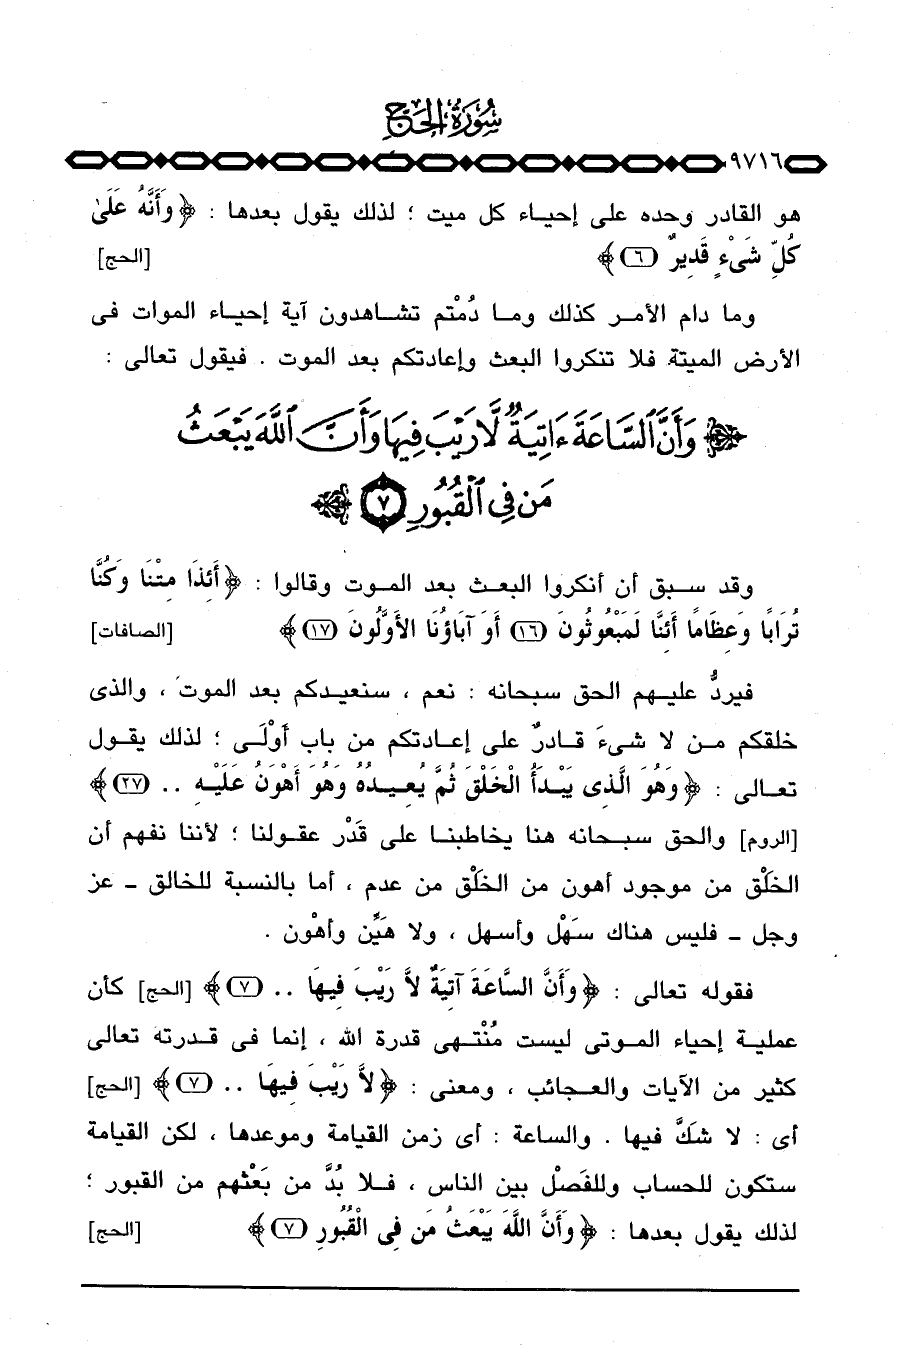 سُورَةُ الحَجّ
٩٧١٦
هو القادر وحده على إحياء كل ميت ؛ لذلك يقول بعدها : ﴿وَأَنَّهُ عَلَىٰ
كُلِّ شَىْءٍ قَدِيرٌ (٦)﴾ [الحج]
وما دام الأمر كذلك وما دُمْتم تشاهدون آية إحياء الموات فى
الأرض الميتة فلا تنكروا البعث وإعادتكم بعد الموت . فيقول تعالى :
﴿ وَأَنَّ ٱلسَّاعَةَ ءَاتِيَةٌ لَّا رَيْبَ فِيهَا وَأَنَّ ٱللَّهَ يَبْعَثُ
مَن فِى ٱلْقُبُورِ ٧ ﴾
وقد سبق أن أنكروا البعث بعد الموت وقالوا : ﴿أَئِذَا مِتْنَا وَكُنَّا
تُرَابًا وَعِظَامًا أَئِنَّا لَمَبْعُوثُونَ (١٦) أَوَ آبَاؤُنَا الأَوَّلُونَ (١٧)﴾ [الصافات]
فيردُّ عليهم الحق سبحانه : نعم ، سنعيدكم بعد الموت ، والذى
خلقكم من لا شىءَ قادرٌ على إعادتكم من باب أَوْلَى ؛ لذلك يقول
تعالى : ﴿وَهُوَ الَّذِى يَبْدَأُ الْخَلْقَ ثُمَّ يُعِيدُهُ وَهُوَ أَهْوَنُ عَلَيْهِ .. (٢٧)﴾
[الروم] والحق سبحانه هنا يخاطبنا على قَدْر عقولنا ؛ لأننا نفهم أن
الخَلْق من موجود أهون من الخَلْق من عدم ، أما بالنسبة للخالق - عز
وجل - فليس هناك سَهْل وأسهل ، ولا هَيِّن وأهْون .
فقوله تعالى : ﴿وَأَنَّ السَّاعَةَ آتِيَةٌ لاَّ رَيْبَ فِيهَا .. (٧)﴾ [الحج] كأن
عملية إحياء الموتى ليست مُنْتهى قدرة الله ، إنما فى قدرته تعالى
كثير من الآيات والعجائب ، ومعنى : ﴿لاَّ رَيْبَ فِيهَا .. (٧)﴾ [الحج]
أى : لا شكَّ فيها . والساعة : أى زمن القيامة وموعدها ، لكن القيامة
ستكون للحساب وللفَصْل بين الناس ، فلا بُدَّ من بَعْثهم من القبور ؛
لذلك يقول بعدها : ﴿وَأَنَّ اللَّهَ يَبْعَثُ مَن فِى الْقُبُورِ (٧)﴾ [الحج]